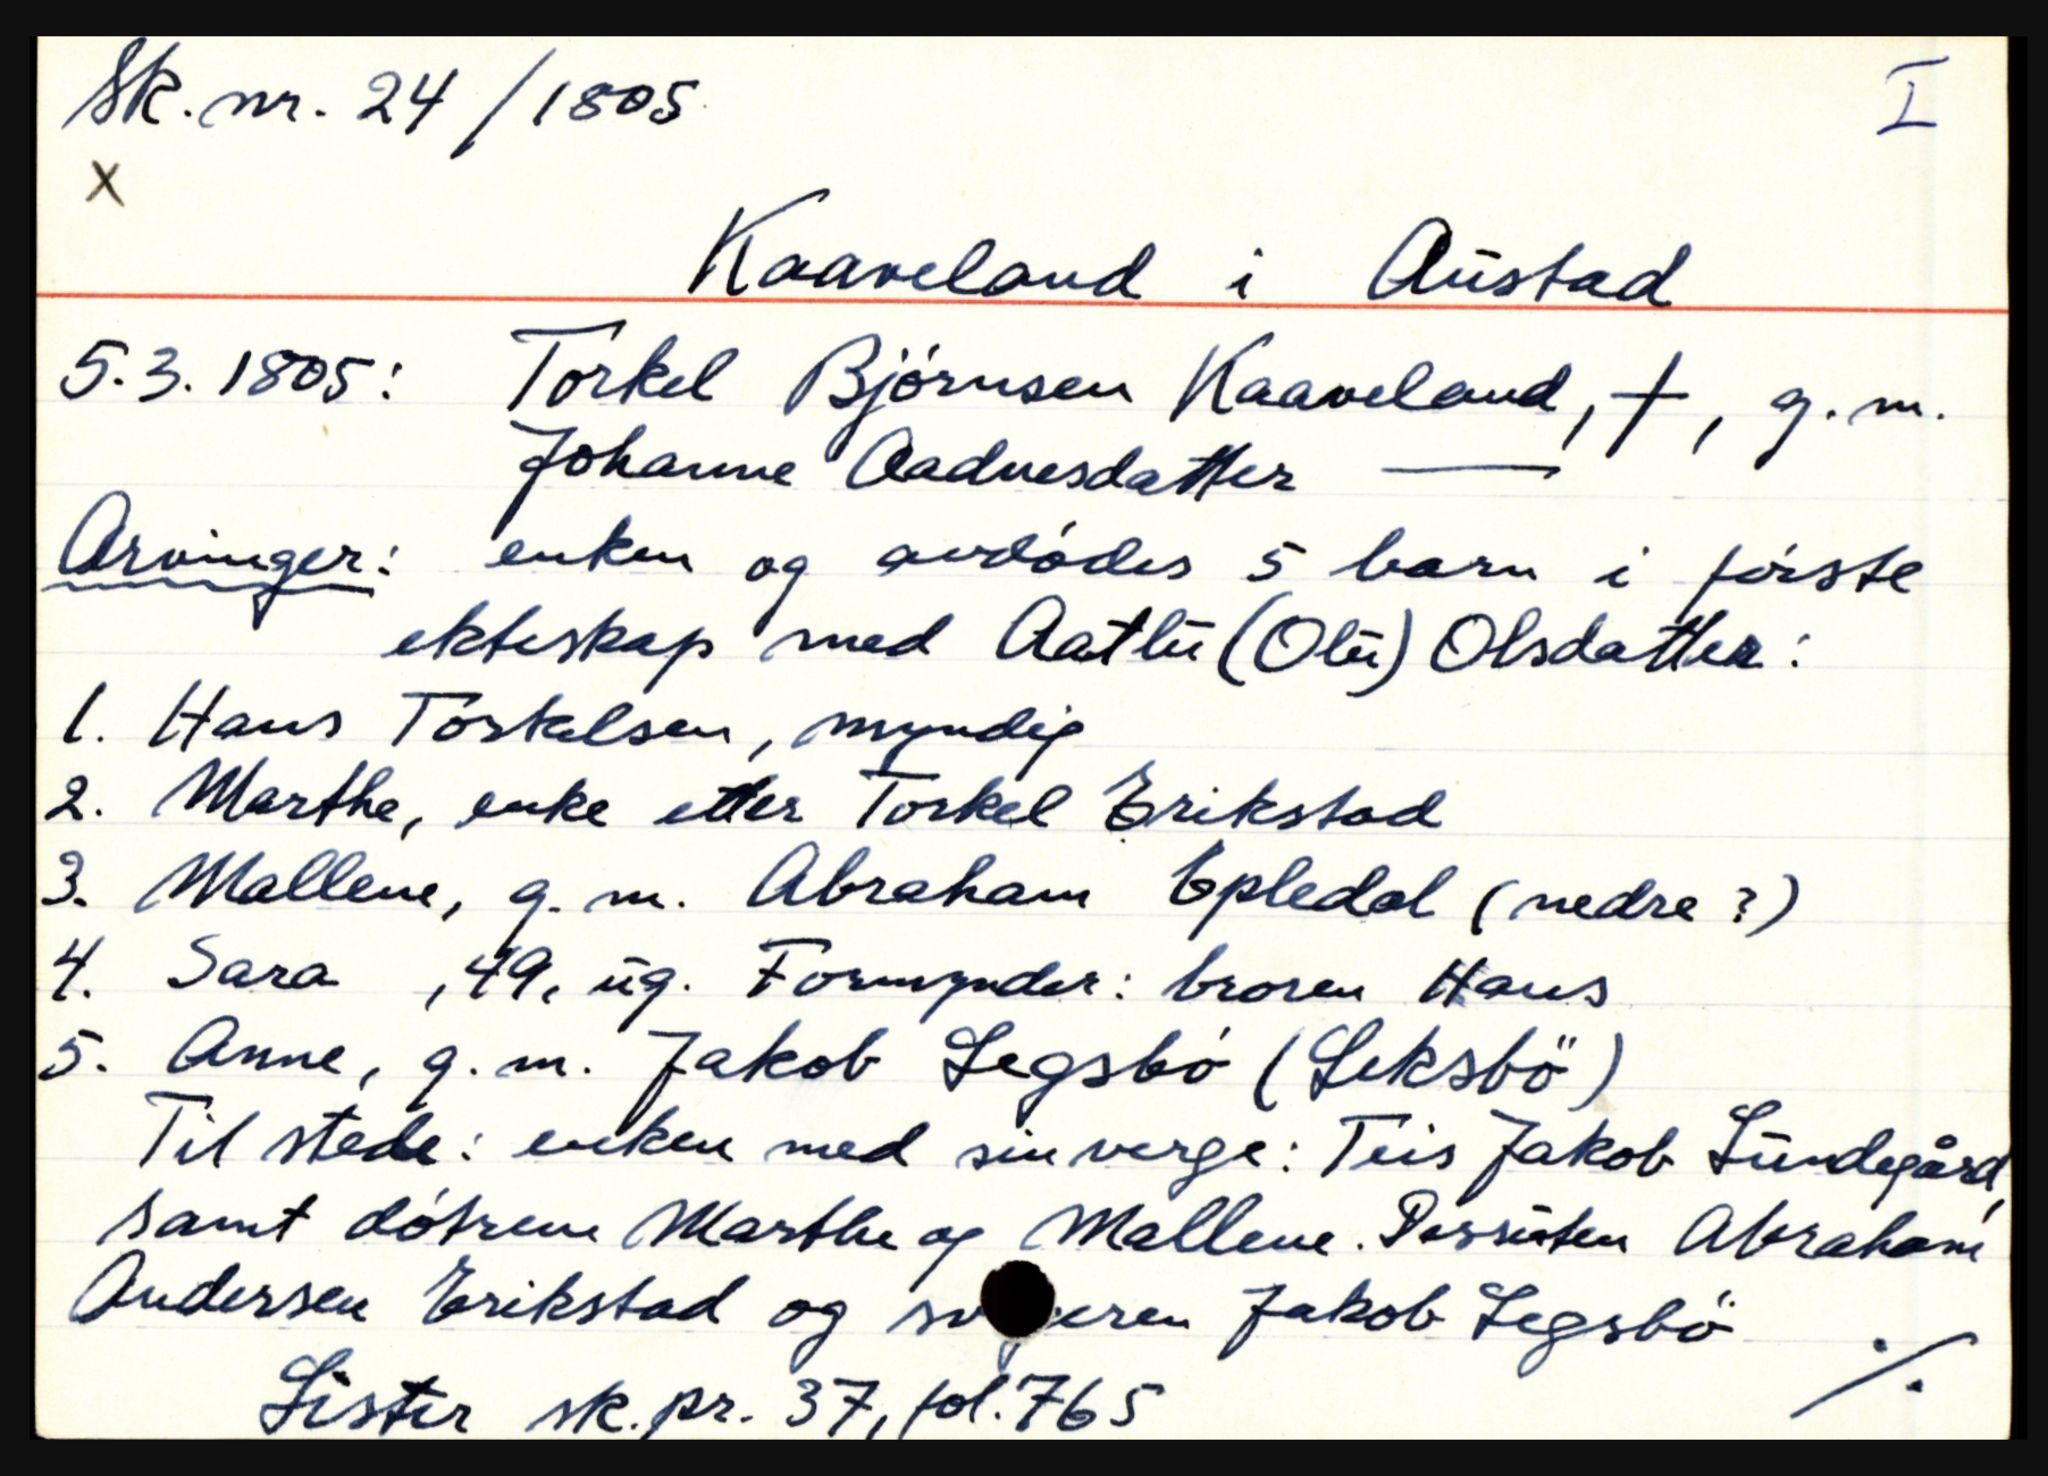 Sk. nr. 24/1805 I
x
Kaaveland i Austad
5.3. 1805: Torkel Bjørnsen Kaaveland, †, g. m.
Johanne Aadnesdatter —
Arvinger: enken og avdødes 5 barn i første
ekteskap med Aatlu (Olu) Olsdatter:
1. Hans Torkelsen, myndig
2. Marthe, enke etter Torkel Erikstad
3. Mallene, g. m. Abraham Epledal (nedre?)
4. Sara , 49, ug. Formynder: broren Hans
5. Anne, g. m. Jakob Legsbø (Leksbö)
Til stede: enken med sin verge: Teis Jakob Lundegård,
samt døtrene Marthe og Mallene. Dessuten Abraham
Andersen Erikstad og sv eren Jakob Legsbø
Lister sk. pr. 37, fol. 765 ./.